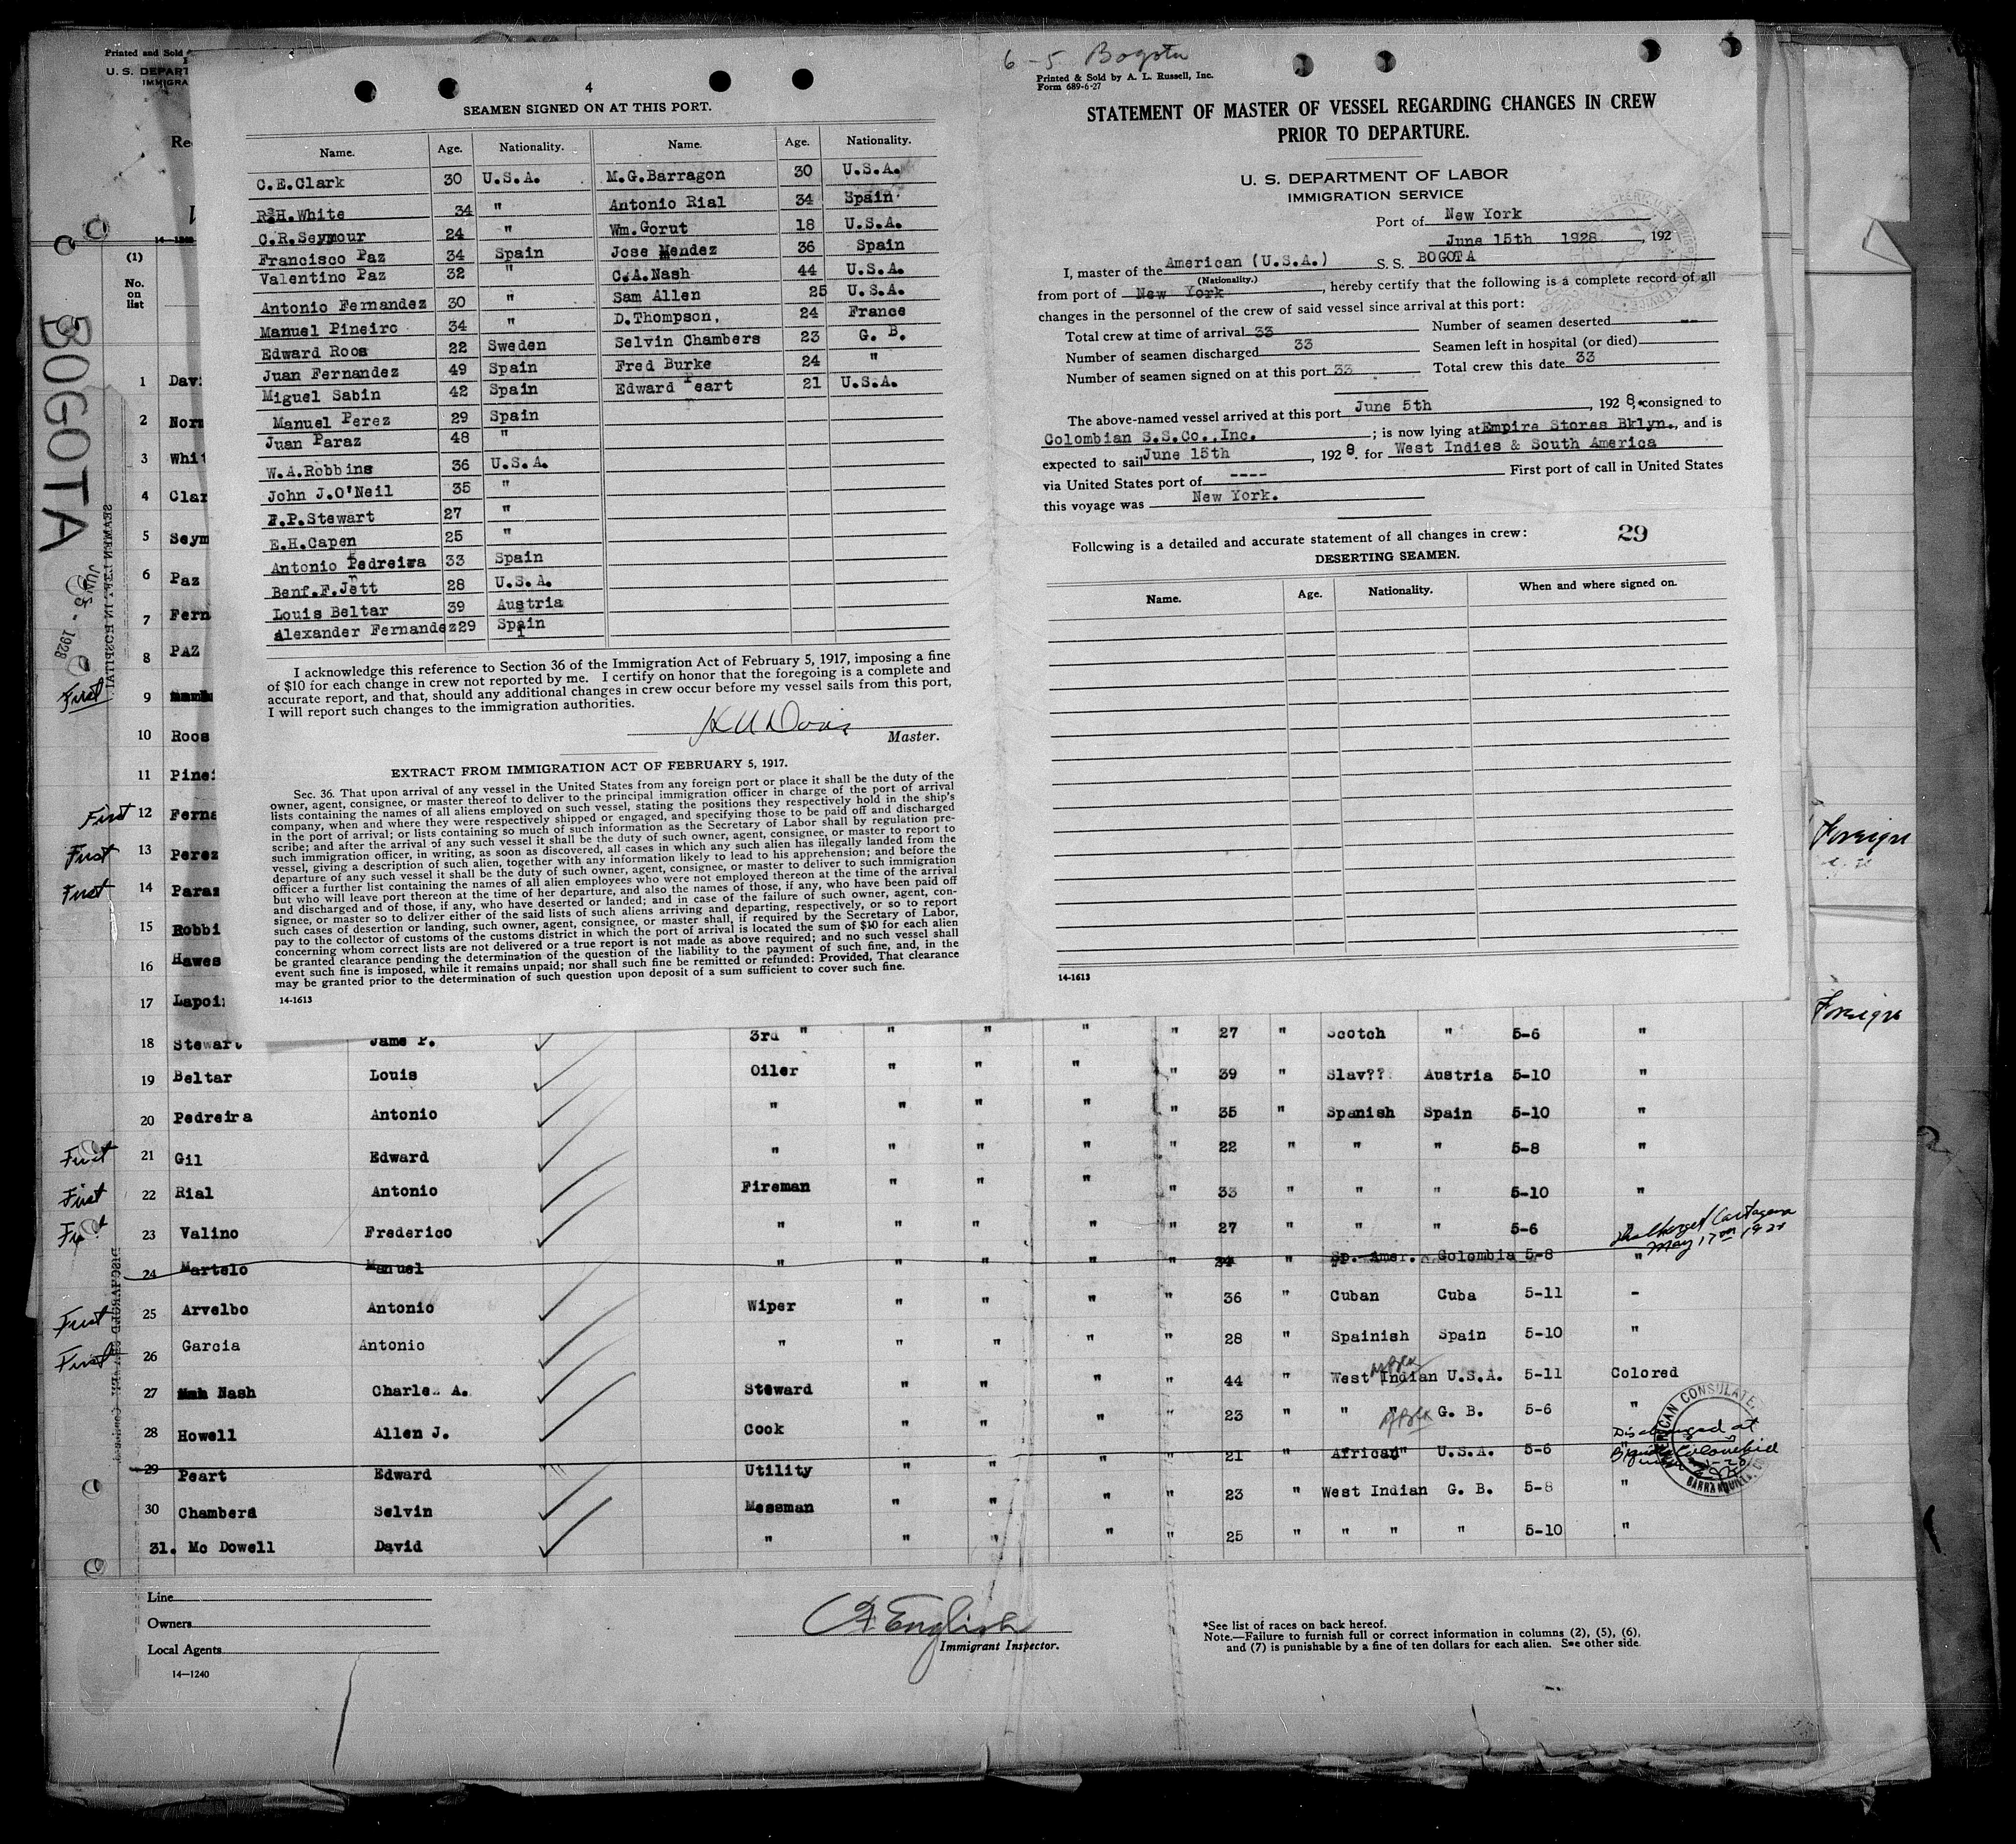 4
SEAMEN SIGNED ON AT THIS PORT.
Name. Age. Nationality. Name. Age. Nationality.
C.E.Clark 30 U.S.A. M.G.Barragon 30 U.S.A.
R.H.White 34 " Antonio Rial 34 Spain
C.R.Seymour 24 " Wm.Gorut 18 U.S.A.
Francisco Paz 34 Spain Jose Mendez 36 Spain
Valentino Paz 32 " C.A.Nash 44 U.S.A.
Antonio Fernandez 30 " Sam Allen 25 U.S.A.
Manuel Pineiro 34 " D.Thompson. 24 France
Edward Roos 22 Sweden Selvin Chambers 23 G. B.
Juan Fernandez 49 Spain Fred Burke 24 "
Miguel Sabin 42 Spain Edward Peart 21 U.S.A.
Manuel Perez 29 Spain
Juan Paraz 48 "
W.A.Robbins 36 U.S.A.
John J.O'Neil 35 "
F.P.Stewart 27 "
E.H.Capen 25 "
Antonio Pedreira 33 Spain
Benf.F.Jett 28 U.S.A.
Louis Beltar 39 Austria
Alexander Fernandez 29 Spain
I acknowledge this reference to Section 36 of the Immigration Act of February 5, 1917, imposing a fine
of $10 for each change in crew not reported by me. I certify on honor that the foregoing is a complete and
accurate report, and that, should any additional changes in crew occur before my vessel sails from this port,
I will report such changes to the immigration authorities.
Master.
EXTRACT FROM IMMIGRATION ACT OF FEBRUARY 5, 1917.
Sec. 36. That upon arrival of any vessel in the United States from any foreign port or place it shall be the duty of the
owner, agent, consignee, or master thereof to deliver to the principal immigration officer in charge of the port of arrival
lists containing the names of all aliens employed on such vessel, stating the positions they respectively hold in the ship's
company, when and where they were respectively shipped or engaged, and specifying those to be paid off and discharged
in the port of arrival; or lists containing so much of such information as the Secretary of Labor shall by regulation pre-
scribe; and after the arrival of any such vessel it shall be the duty of such owner, agent, consignee, or master to report to
such immigration officer, in writing, as soon as discovered, all cases in which any such alien has illegally landed from the
vessel, giving a description of such alien, together with any information likely to lead to his apprehension; and before the
departure of any such vessel it shall be the duty of such owner, agent, consignee, or master to deliver to such immigration
officer a further list containing the names of all alien employees who were not employed thereon at the time of the arrival
but who will leave port thereon at the time of her departure, and also the names of those, if any, who have been paid off
and discharged and of those, if any, who have deserted or landed; and in case of the failure of such owner, agent, con-
signee, or master so to deliver either of the said lists of such aliens arriving and departing, respectively, or so to report
such cases of desertion or landing, such owner, agent, consignee, or master shall, if required by the Secretary of Labor,
pay to the collector of customs of the customs district in which the port of arrival is located the sum of $10 for each alien
concerning whom correct lists are not delivered or a true report is not made as above required; and no such vessel shall
be granted clearance pending the determination of the question of the liability to the payment of such fine, and, in the
event such fine is imposed, while it remains unpaid; nor shall such fine be remitted or refunded: Provided, That clearance
may be granted prior to the determination of such question upon deposit of a sum sufficient to cover such fine.
14-1613
6-5 Bogota
Printed & Sold by A. L. Russell, Inc.
Form 689-6-27
STATEMENT OF MASTER OF VESSEL REGARDING CHANGES IN CREW
PRIOR TO DEPARTURE.
U. S. DEPARTMENT OF LABOR
IMMIGRATION SERVICE
Port of New York
June 15th 1928, 192
I, master of the American (U.S.A.) S. S. BOGOTA
(Nationality.)
from port of New York, hereby certify that the following is a complete record of all
changes in the personnel of the crew of said vessel since arrival at this port:
Total crew at time of arrival 33 Number of seamen deserted --
Number of seamen discharged 33 Seamen left in hospital (or died)
Number of seamen signed on at this port 33 Total crew this date 33
The above-named vessel arrived at this port June 5th, 1928, consigned to
Colombian S.S.Co.,Inc.; is now lying at Empire Stores Bklyn., and is
expected to sail June 15th, 1928. for West Indies & South America
via United States port of ---- First port of call in United States
this voyage was New York.
Following is a detailed and accurate statement of all changes in crew: 29
DESERTING SEAMEN.
Name. Age. Nationality. When and where signed on.
14-1613
Printed and Sold
U. S. DEPART
IMMIGRA
Re
14-1240
(1)
No.
on
list
BOGOTA
JUN 5 - 1928
1 Davi
2 Norm
3 Whit
4 Clar
5 Seym
6 Paz
7 Fern
8 PAZ
First 9
10 Roos
11 Pinei
First 12 Ferna
First 13 Perez
First 14 Paraz
15 Robbi
16 Hawes
17 Lapoi
Foreign
Foreign
18 Stewart Jame P. 3rd " " " " " 27 " Scotch " 5-6 "
19 Beltar Louis Oiler " " " " 39 " Slav?? Austria 5-10 "
20 Pedreira Antonio " " " " " 35 " Spanish Spain 5-10 "
First 21 Gil Edward " " " " " 22 " " " 5-8 "
First 22 Rial Antonio Fireman " " " " 33 " " " 5-10 "
First 23 Valino Frederico " " " " " 27 " " " 5-6
Discharged Cartagena
May 17th 1928
24 Martelo Manuel " " " " " 24 " Sp. Amer. Colombia 5-8 "
First 25 Arvelbo Antonio Wiper " " " " 36 " Cuban Cuba 5-11 -
First 26 Garcia Antonio " " " " " 28 " Spainish Spain 5-10 "
27 Nash Charles A. Steward " " " " 44 " West Indian U.S.A. 5-11 Colored
28 Howell Allen J. Cook " " " " 23 " " " G. B. 5-6 "
29 Peart Edward Utility " " " " 21 " African" U.S.A. 5-6 Discharged at
30 Chamberd Selvin Messman " " " " 23 " West Indian G. B. 5-8 "
31. Mc Dowell David " " " " " 25 " " " " 5-10 "
AMERICAN CONSULATE
BARRANQUILLA
Line
Owners
Local Agents
14—1240
C A English
Immigrant Inspector.
*See list of races on back hereof.
Note.—Failure to furnish full or correct information in columns (2), (5), (6),
and (7) is punishable by a fine of ten dollars for each alien. See other side.